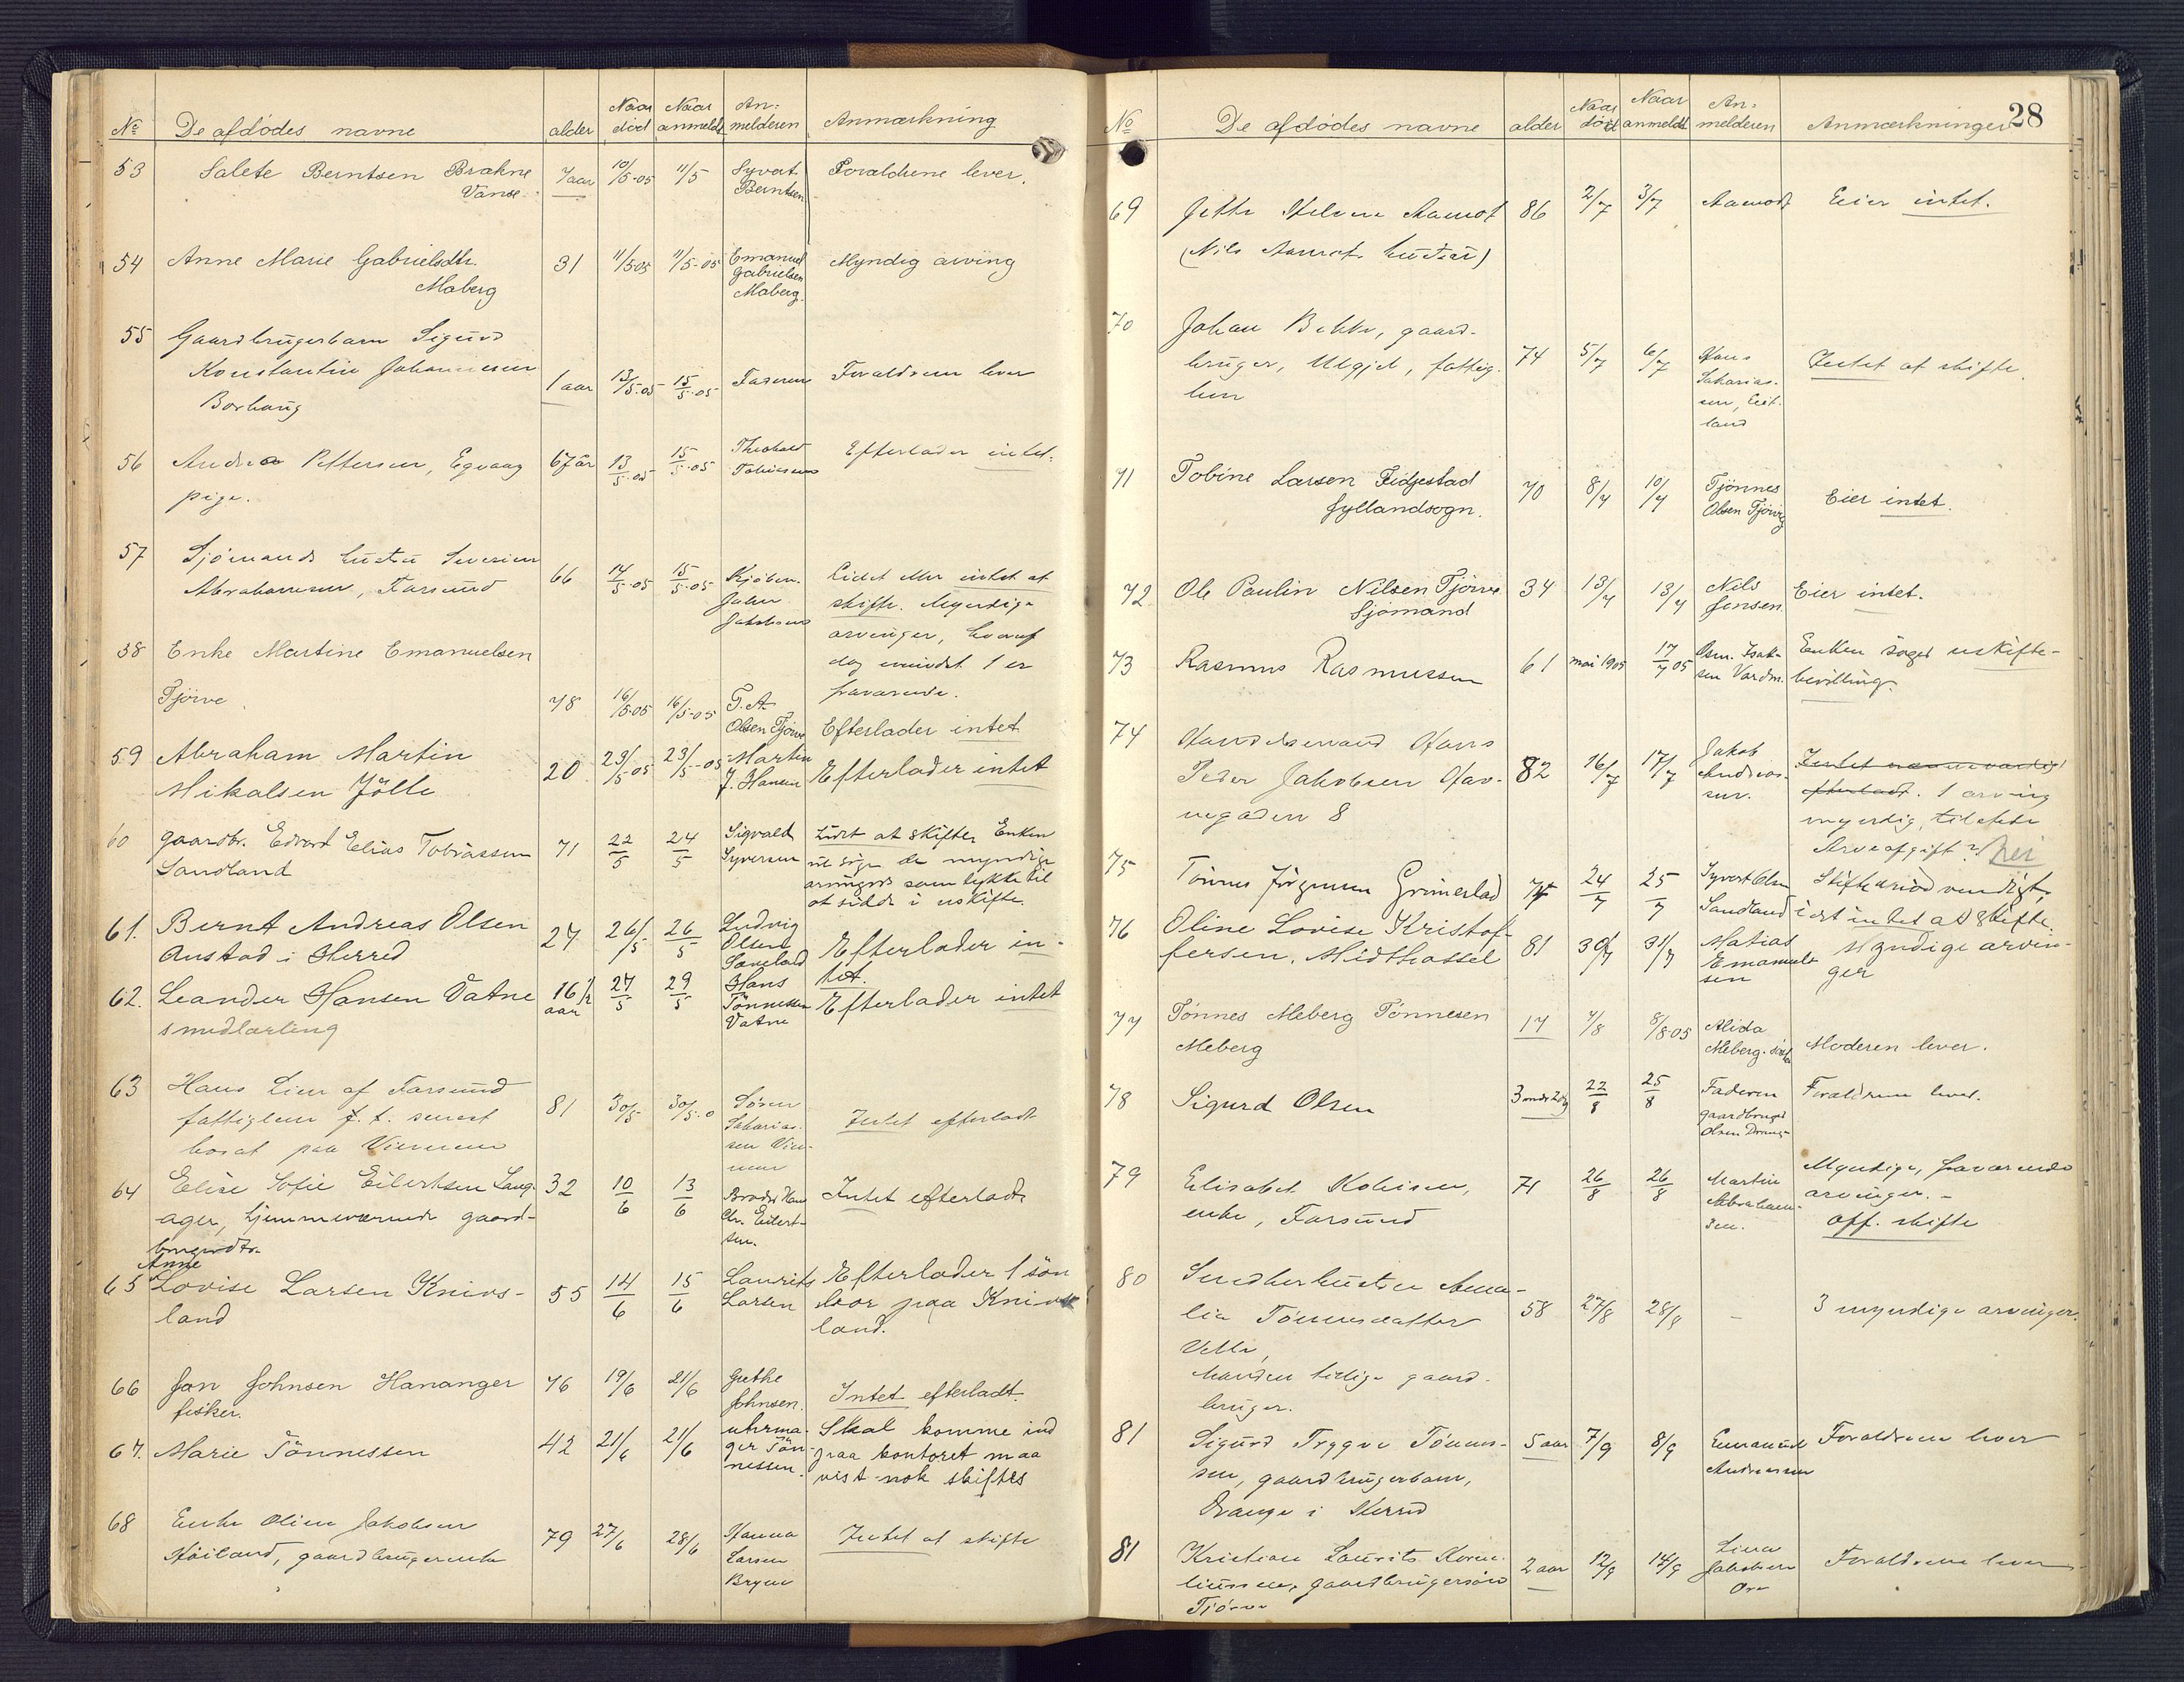 No De afdødes navne alder Naar død Naar anmeldt Anmelderen Anmærkning
53 Salete Berntsen Brakne 7 aar 10/5-05 11/5 Syvert Foraldrene lever.
Vanse. Berntsen
54 Anne Marie Gabrielsdtr. 31 11/5 05 11/5-05 Emanuel Myndig arving
Maberg Gabrielsen
Maberg.
55 Gaardbrugerbarn Sigurd
Konstantin Johannesen 1 aar 13/5-05 15/5-05 Faderen Foraldrene lever
Borhaug
56 Andrea Pettersen, Egvaag 67 år 13/5-05 15/5-05 Theobald Efterlader intet.
pige. Tobiassen
57 Sjømands hustru Severine
Abrahamsen, Farsund 66 14/5-05 15/5-05 Kjøbm. Lidet eller intet at
John skifte. Myndige
Jakobsen arvinger, hvoraf
dog mindst 1 er
fraværende.
58 Enke Martine Emanuelsen
Tjörve 78 16/5-05 16/5-05 T. A.
Olsen Tjörve Efterlader intet
59 Abraham Martin 20 23/5-05 23/5-05 Martin
Mikalsen Jölle J. Hansen Efterlader intet
60 gaardbr. Edvard Elias Tobiassen 71 22/5 24/5 Sigvald Lidt at skifte. Enken
Sandland Syversen vil söge de myndige
arvingers samtykke til
at sidde i uskifte.
61. Bernt Andreas Olsen 27 26/5 26/5 Ludvig
Austad i Herred Olsen Efterlader in-
tet.
62. Leander Hansen Vatne 16 1/2 aar 27/5 29/5 Hans
smedlærling Tönnessen Efterlader intet
Vatne
63 Hans Lien af Farsund
fattiglem f. t. senest 81 30/5 30/5-0 Søren Intet efterladt
bosat paa Viemem Sakarias-
sen
64 Elise Sofie Eilertsen Lang- 32 10/6 13/6 Broder Hans Intet efterladt
ager, hjemmeværende gaard- Chr. Eilert-
brugerdtr. sen.
Anne
65 Lovise Larsen Knivs- 55 14/6 15/6 Laurits Efterlader 1 sön
land Larsen bor paa Knivs
land.
66 Jan Johnsen Hananger 76 19/6 21/6 Grethe
fisker. Johnsen. Intet efterladt.
67. Marie Tönnessen 42 21/6 21/6 uhrma- Skal komme ind
ger Tön- paa kontoret maa
nessen. vist nok skiftes
68 Enke Oline Jakobsen
Høiland, gaardbrugerenke 79 27/6 28/6 Hanna Intet at skifte
Larsen
Bryne
28
No De afdödes navne alder Naar död Naar anmeldt Anmelderen Anmærkninger
69 Jette Helene Aamot 86 2/7 3/7 Aamodt Eier intet.
(Nils Aamots hustru)
70 Johan Bekke, gaard-
bruger, Ulgjel, fattig- 74 5/7 6/7 Hans Intet at skifte.
lem Sakarias-
sen, Eit-
land
71 Tobine Larsen Fidjestad 70 8/7 10/7 Tjönnes Eier intet.
Gyllandsogn. Olsen Tjörve
72 Ole Paulin Nilsen Tjörve 34 13/7 13/7 Nils Eier intet.
Sjömand Jensen
73 Rasmus Rasmussen 61 mai 1905 17/7 05 Osm. Isak- Enken söger uskifte-
sen Vardm. bevilling.
74 Handelsmand Hans
Peder Jakobsen Hav- 82 16/7 17/7 Jakob Intet nævneværdigt
negaden 8 Andreas- efterladt. 1 arving
sen. myndig, tilstede
Arveafgift? Nei
75 Tönnes Jörgensen Grimerlad 74 24/7 25/7 Syvert Olsen Skifte unödvendigt,
Sandland idet intet at skifte.
76 Oline Lovise Kristof- 81 30/7 31/7 Matias Myndige arvin-
fersen, Midthassel Emanuel- ger
sen
77 Tönnes Meberg Tönnesen 17 7/8 8/8 05 Alida
Meberg Meberg. Moderen lever.
78 Sigurd Olsen 3 mndr 2 dg 22/8 25/8 Faderen Foraldrene lever.
gaardbruger
Olsen Drange
79 Elisabet Robisen, 71 26/8 26/8 Martin Myndige, fraværende
enke, Farsund Abraham- arvinger. –
sen. Off. skifte
80 Snedkerhustru Ama-
lia Tönnesdatter 58 27/8 28/8 – 3 myndige arvinger.
Velle,
Manden tidlige gaard-
bruger.
81 Sigurd Trygve Tönnes- 5 aar 7/9 8/9 Emanuel Foraldrene lever
sen, gaardbrugerbarn, Andreassen
Drange i Herred
81 Kristian Laurits Korne- 2 aar 12/9 14/9 Lina Foraldrene lever
liussen, gaardbrugersön Jakobsen
Tjörve Ore